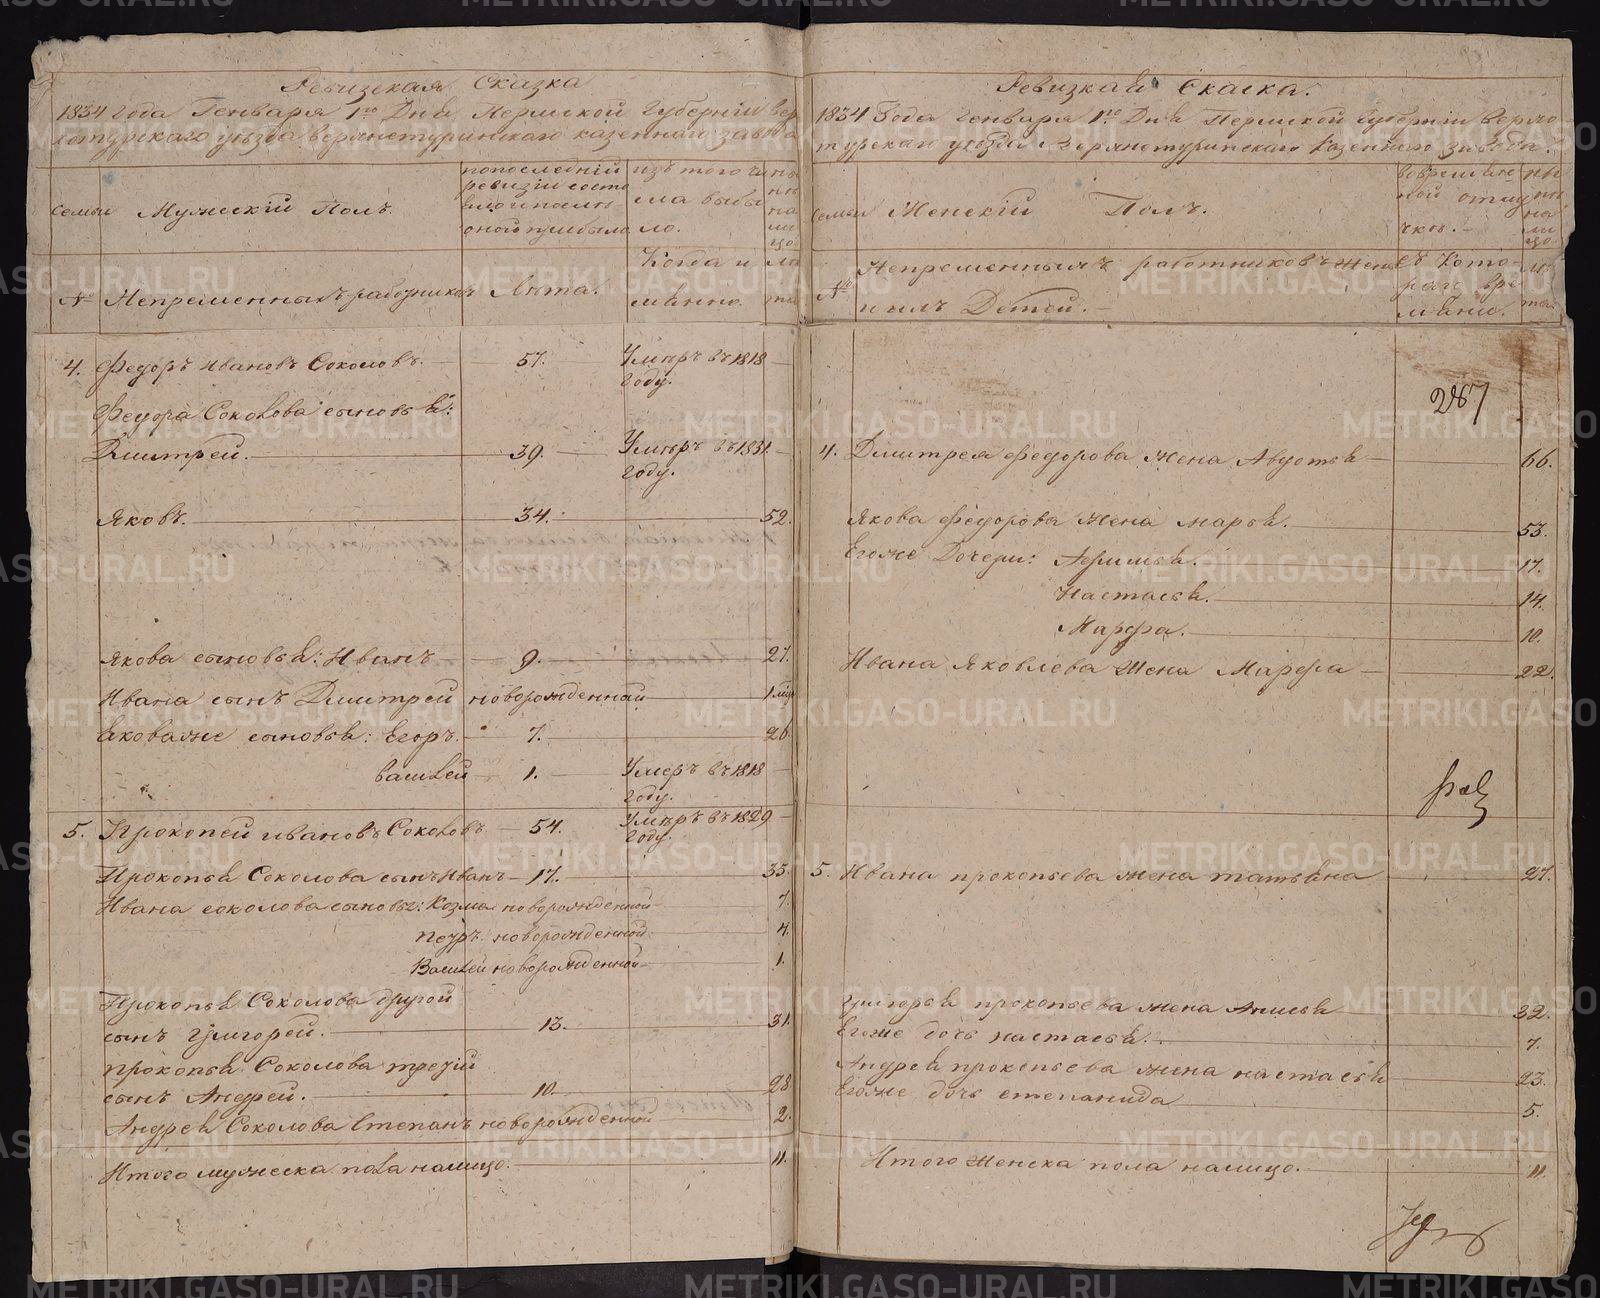 Ревизская Сказка
1834 года Генваря 1го Дня, Пермской Губернии Вер
хотурскаго уезда верхнетуринскаго казеннаго завода
семьи
Мужескій Полъ.
попоследнiй
ревизiи состо
яло ипосле
оной прибыло
изъ того чи
сла выбы
ло.
ны
не
на
ли
цо
№
Непременныхъ работниковъ
Лета.
Когда и
менно.
ле
та
4. Федоръ Ивановъ Соколовъ. 57. Умеръ въ 1818
году.
Федора Соколова сыновья:
Дмитрей. 39. Умеръ въ 1831.
году.
Яковъ. 34. 52.
Якова сыновья: Иванъ 9. 27.
Ивана сынъ Дмитрей новорожденнай 1 ме
Яковаже сыновья: Егоръ. 7. 26
Василей 1. Умеръ въ 1818
году.
5. Прокопей ивановъ Соколовъ 54. Умеръ въ 1829
году.
Прокопья Соколова сынъ Иванъ 17. 35.
Ивана соколова сыновья: Козма новорожденной 7.
Петръ новорожденной 4.
Василей новорожденной 1.
Прокопья Соколова другой
сынъ Григорей. 13. 31.
прокопья Соколова третiй
сынъ Андрей. 10. 28.
Андрея Соколова Степанъ новорожденной 2.
Итого мужеска пола налицо. 11.
Ревизкая Сказка.
1834 Года Генваря 1го Дня Пермской губернiи Верхо
турскаго уезда Верхнетуринскаго Казеннаго завода.
семьи
Женскiй Полъ.
вовременной отлу
чке.
ны
не
на
ли
цо
№
Непременныхъ работниковъ жены
ихъ Детей.
съ кото
раго вре
мени.
ле
та
287
4. Дмитрея федорова жена Авдотья 66.
Якова федорова жена марья. 53.
Егоже Дочери: Афимья. 17.
Настасья. 14.
Марфа. 10.
Ивана Яковлева жена Марфа 22.
5. Ивана прокопьева жена татьяна 27.
Григорья прокопьева жена Анисья 32.
Егоже дочь настасья. 7.
Андрея прокопьева жена настасья 23.
Егоже дочь степанида 5.
Итого женска пола налицо. 11.
METRIKI.GASO-URAL.RU